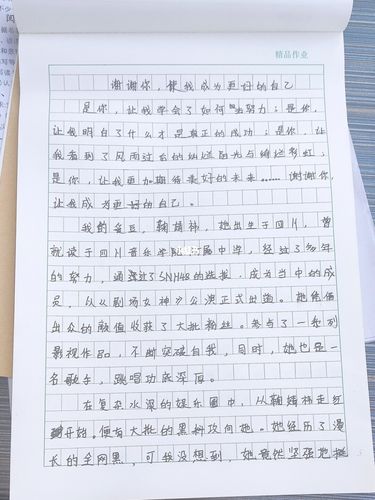 精品作业
谢谢你，使我成为更好的自己
是你，让我学会了如何努力；是你，
让我明白了什么才是真正的成功；是你，让
我看到了风雨过后的灿烂阳光与绚烂彩虹；
是你，让我更加期待美好的未来……谢谢你，
让我成为更好的自己。
我的爱豆，鞠婧祎，她出生于四川，曾
就读于四川音乐学院附属中学，经过了多年
的努力，通过了SNH48的选拔，成为当中的成
员，以《剧场女神》公演正式出道。她凭借
出众的颜值收获了大批粉丝。参与了一系列
影视作品，不断突破自我，同时，她也是一
名歌手，跳唱功底深厚。
在复杂水深的娱乐圈中，从鞠婧祎走红
开始。便有大批的黑料攻向她。她经历了漫
长的全网黑，可我没想到，她竟然坚强地挺